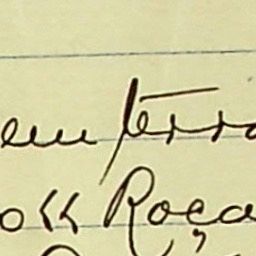 em terra
Roça